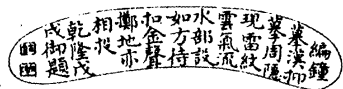 編鐘
摹漢抑
摹周隱
現雷紋
雲氣流
水部設
如方待
扣金聲
擲地亦
相投
乾隆戊
戌御題